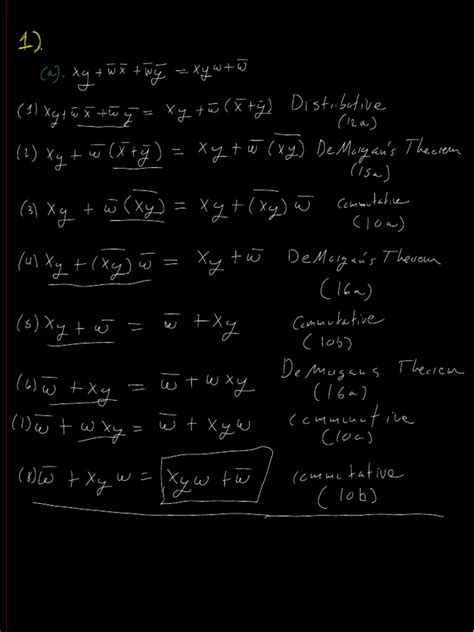 1).
(a). xy + w̅x̅ + w̅y̅ = xyw + w̅
(1) xy + w̅x̅ + w̅y̅ = xy + w̅(x̅+y̅) Distributive
(12a)
(2) xy + w̅(x̅+y̅) = xy + w̅(x̅y̅) DeMorgan's Theorem
(15a)
(3) xy + w̅(x̅y̅) = xy + (x̅y̅)w̅ commutative
(10a)
(4) xy + (x̅y̅)w̅ = xy + w̅ DeMorgan's Theorem
(16a)
(5) xy + w̅ = w̅ + xy commutative
(10b)
(6) w̅ + xy = w̅ + wxy DeMorgans Theorem
(16a)
(7) w̅ + wxy = w̅ + xyw commutative
(10a)
(8) w̅ + xyw = xyw + w̅ commutative
(10b)